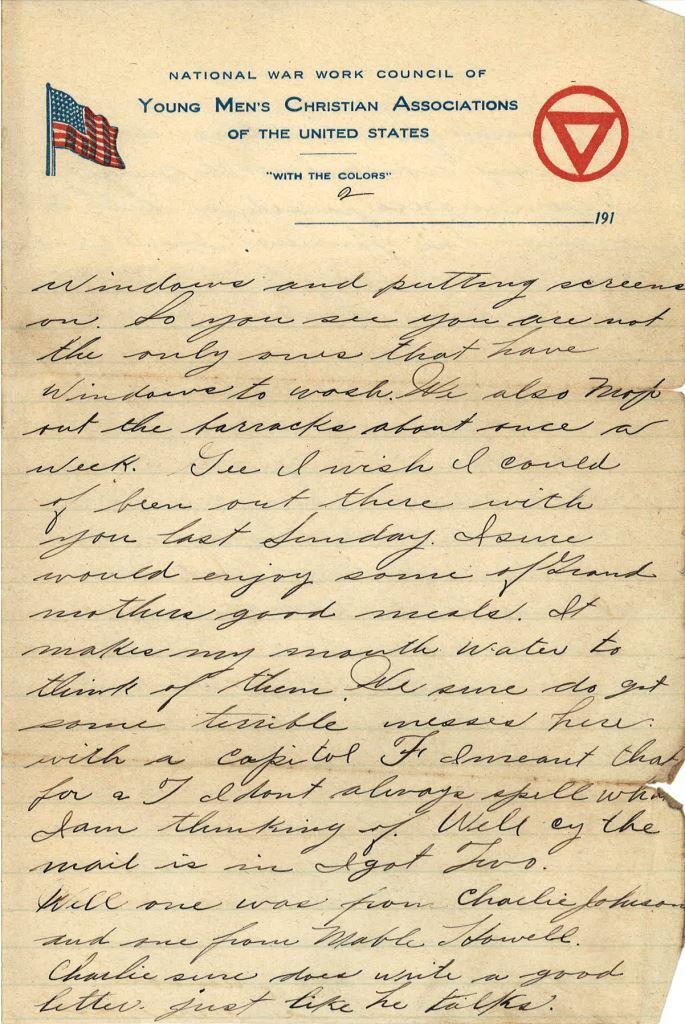 NATIONAL WAR WORK COUNCIL OF
YOUNG MEN'S CHRISTIAN ASSOCIATIONS
OF THE UNITED STATES
"WITH THE COLORS"
2
191
windows and putting screens
on. So you see you are not
the only ones that have
windows to wash. We also mop
out the barracks about once a
week. Gee I wish I could
of been out there with
you last Sunday. I sure
would enjoy some of Grand
mothers good meals. It
makes my mouth water to
think of them. We sure do get
some terrible messes here.
with a capitol F I meant that
for a T I dont always spell what
I am thinking of. Well cy the
mail is in I got Two.
Well one was from Charlie Johnson
and one from Mable Howell.
Charlie sure does write a good
letter. just like he talks.